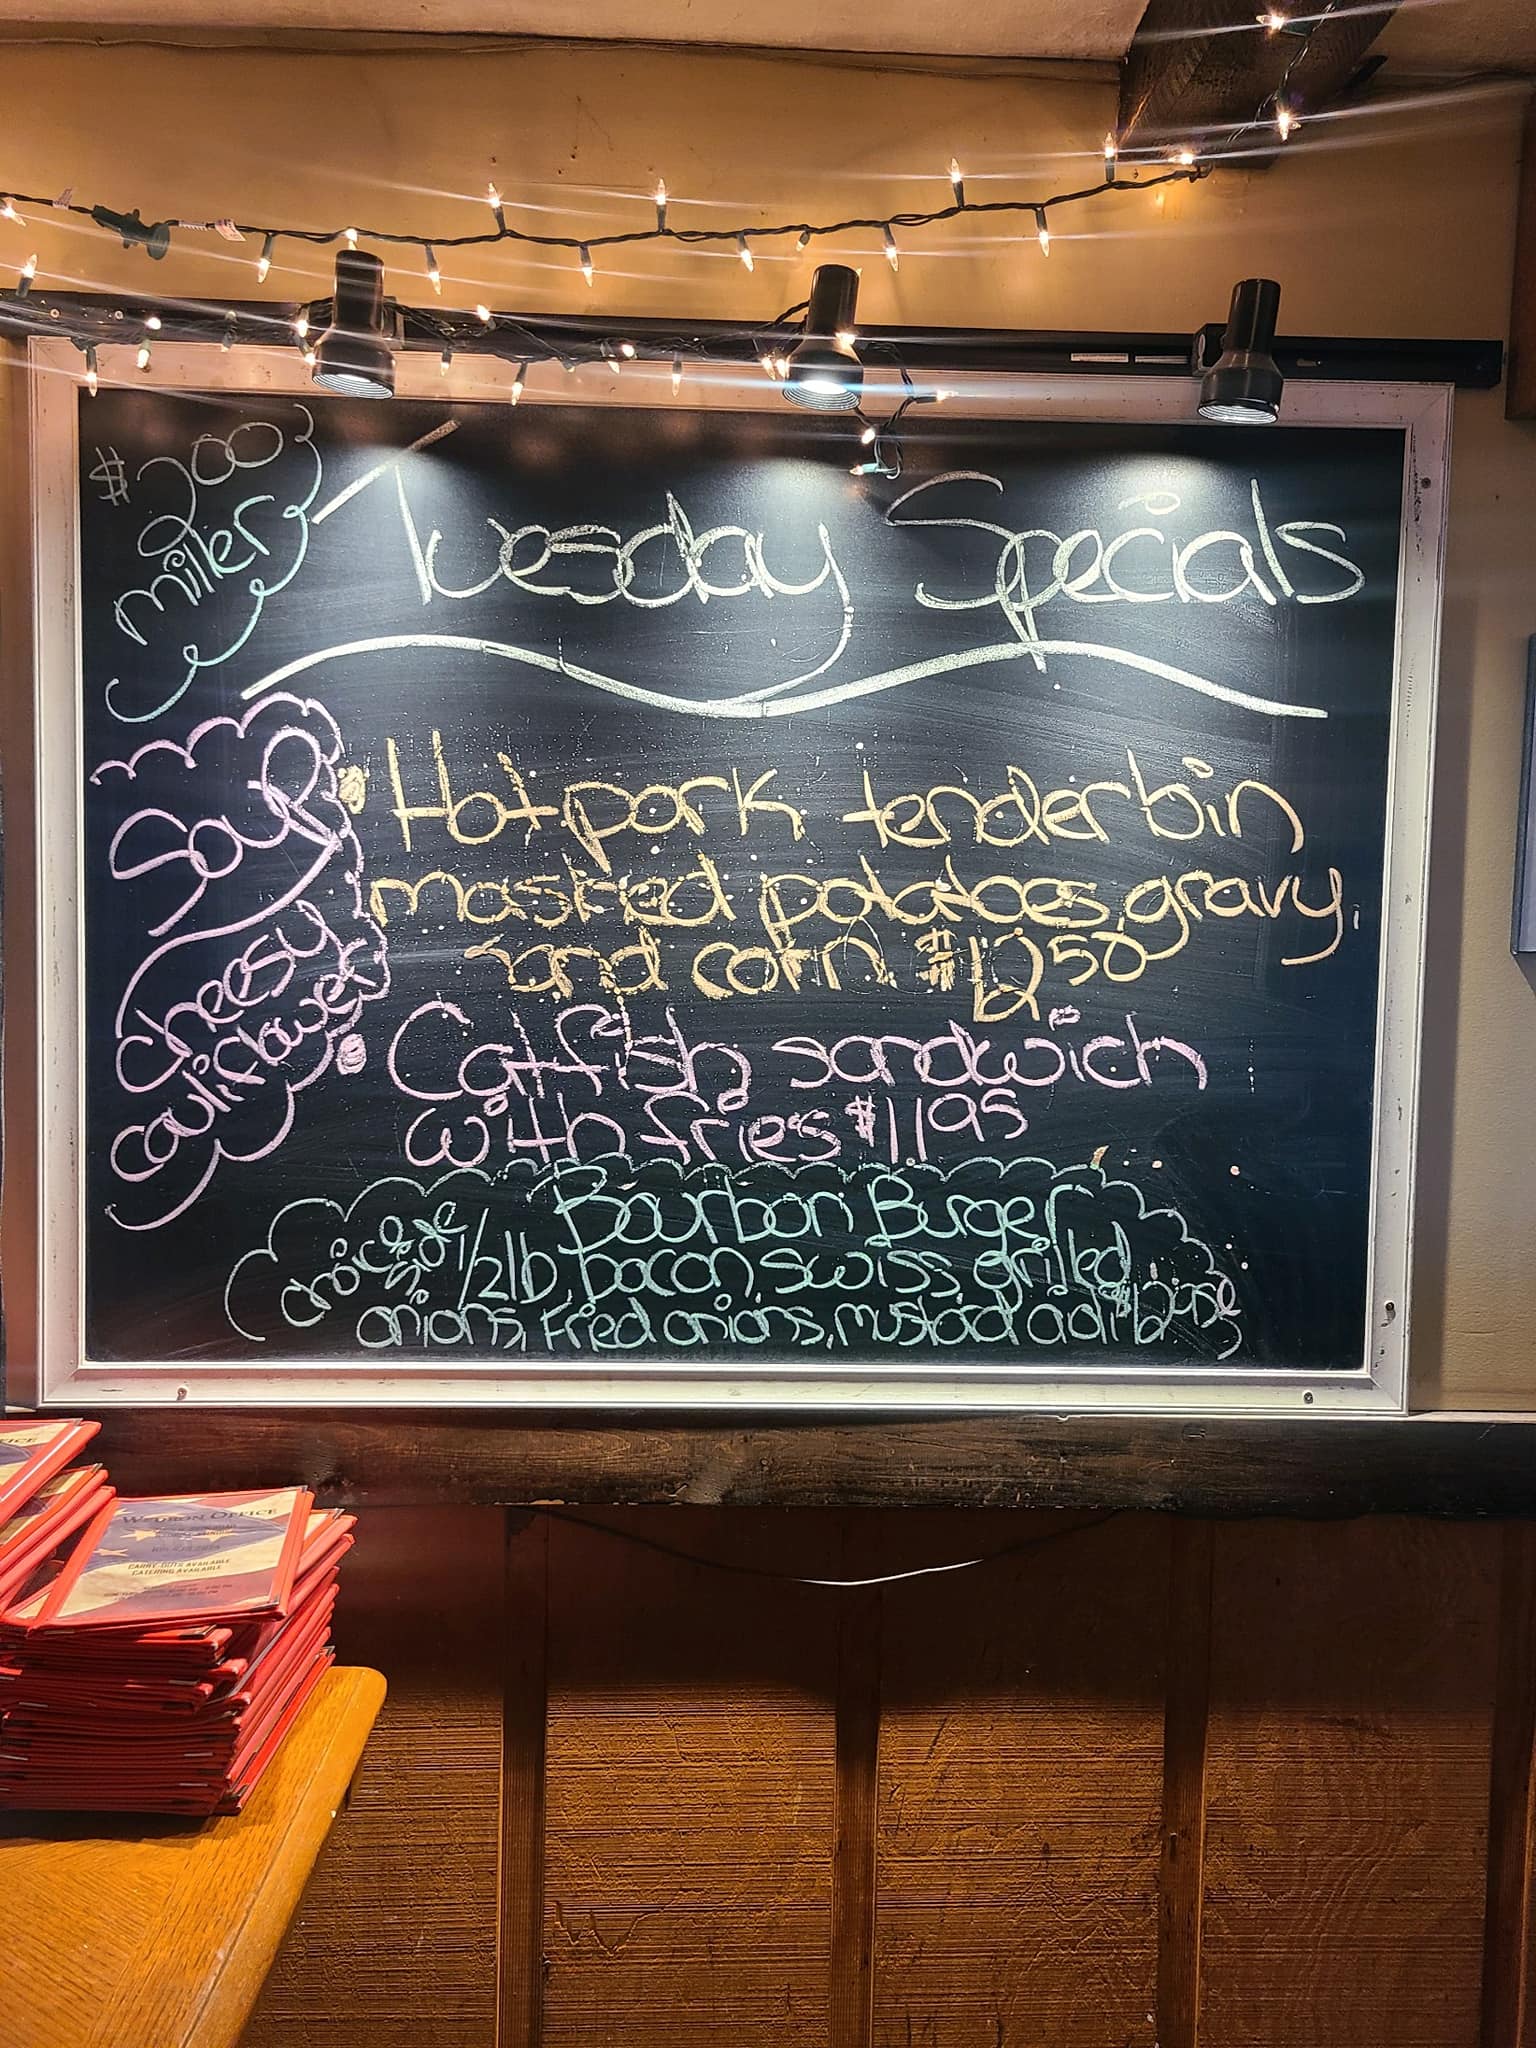 $200
miller
Tuesday Specials
Soup
cheesy
cauliflower
Hot pork tenderbin
mashed potatoes, gravy,
and corn $12 50
Catfish sandwich
with fries $11 95
Bourbon Burger
choice side
1/2 lb bacon swiss, grilled
onions, Fried onions, mustard aoli
OFFICE
WALDRON OFFICE
CARRY-OUTS AVAILABLE
CATERING AVAILABLE